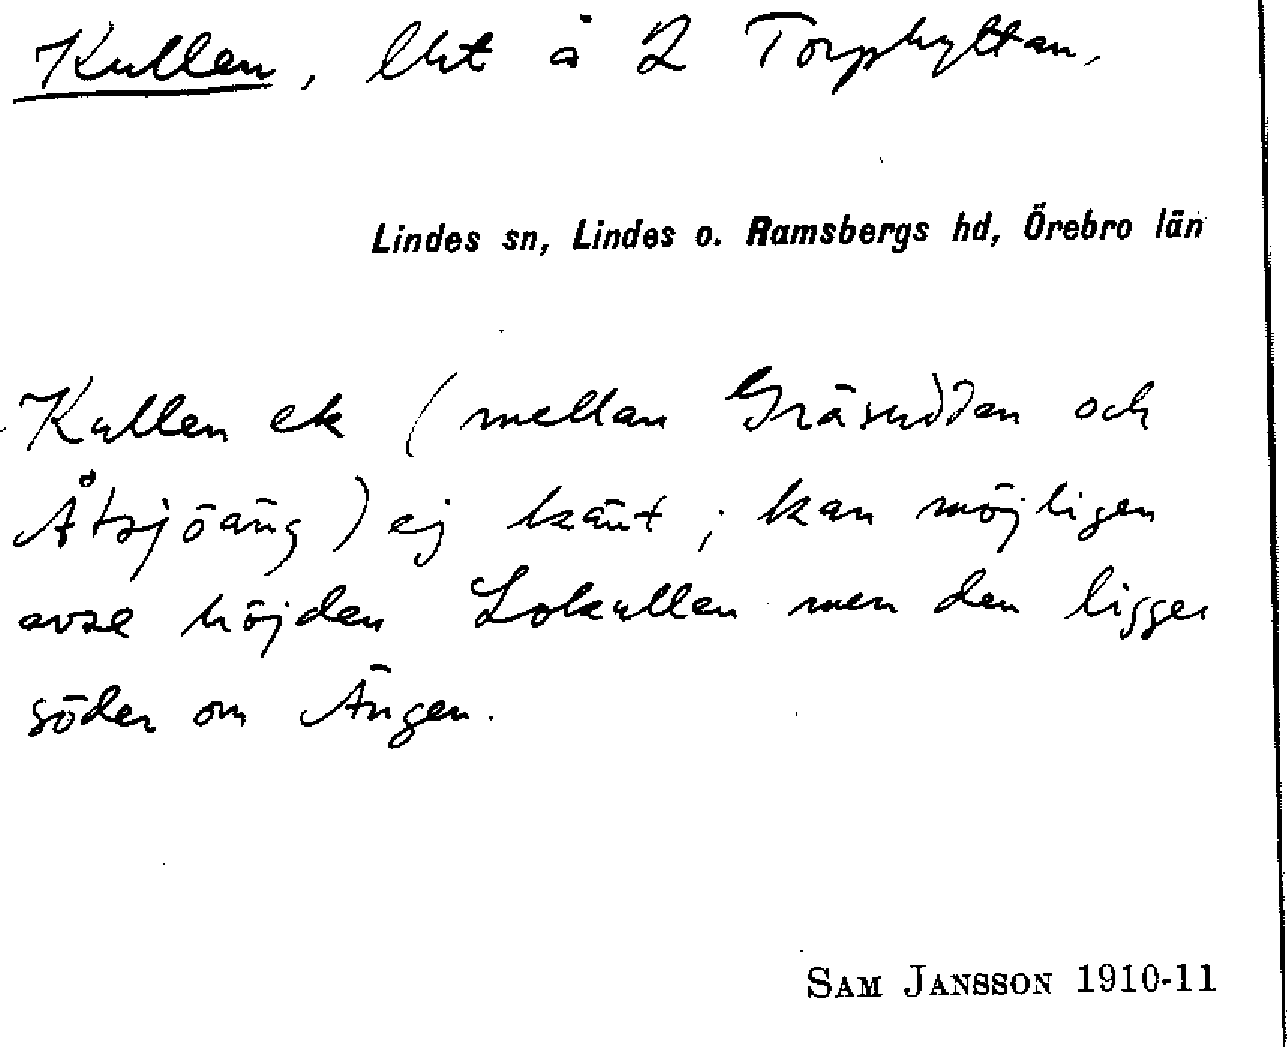 Kullen, lht å 2 Torphyttan,
Lindes sn, Lindes o. Ramsbergs hd, Örebro län
Kullen ek (mellan Gräsudden och
Åtsjöäng) ej känt; kan möjligen
avse höjden Lokullen men den ligger
söder om Ängen.
SAM JANSSON 1910-11